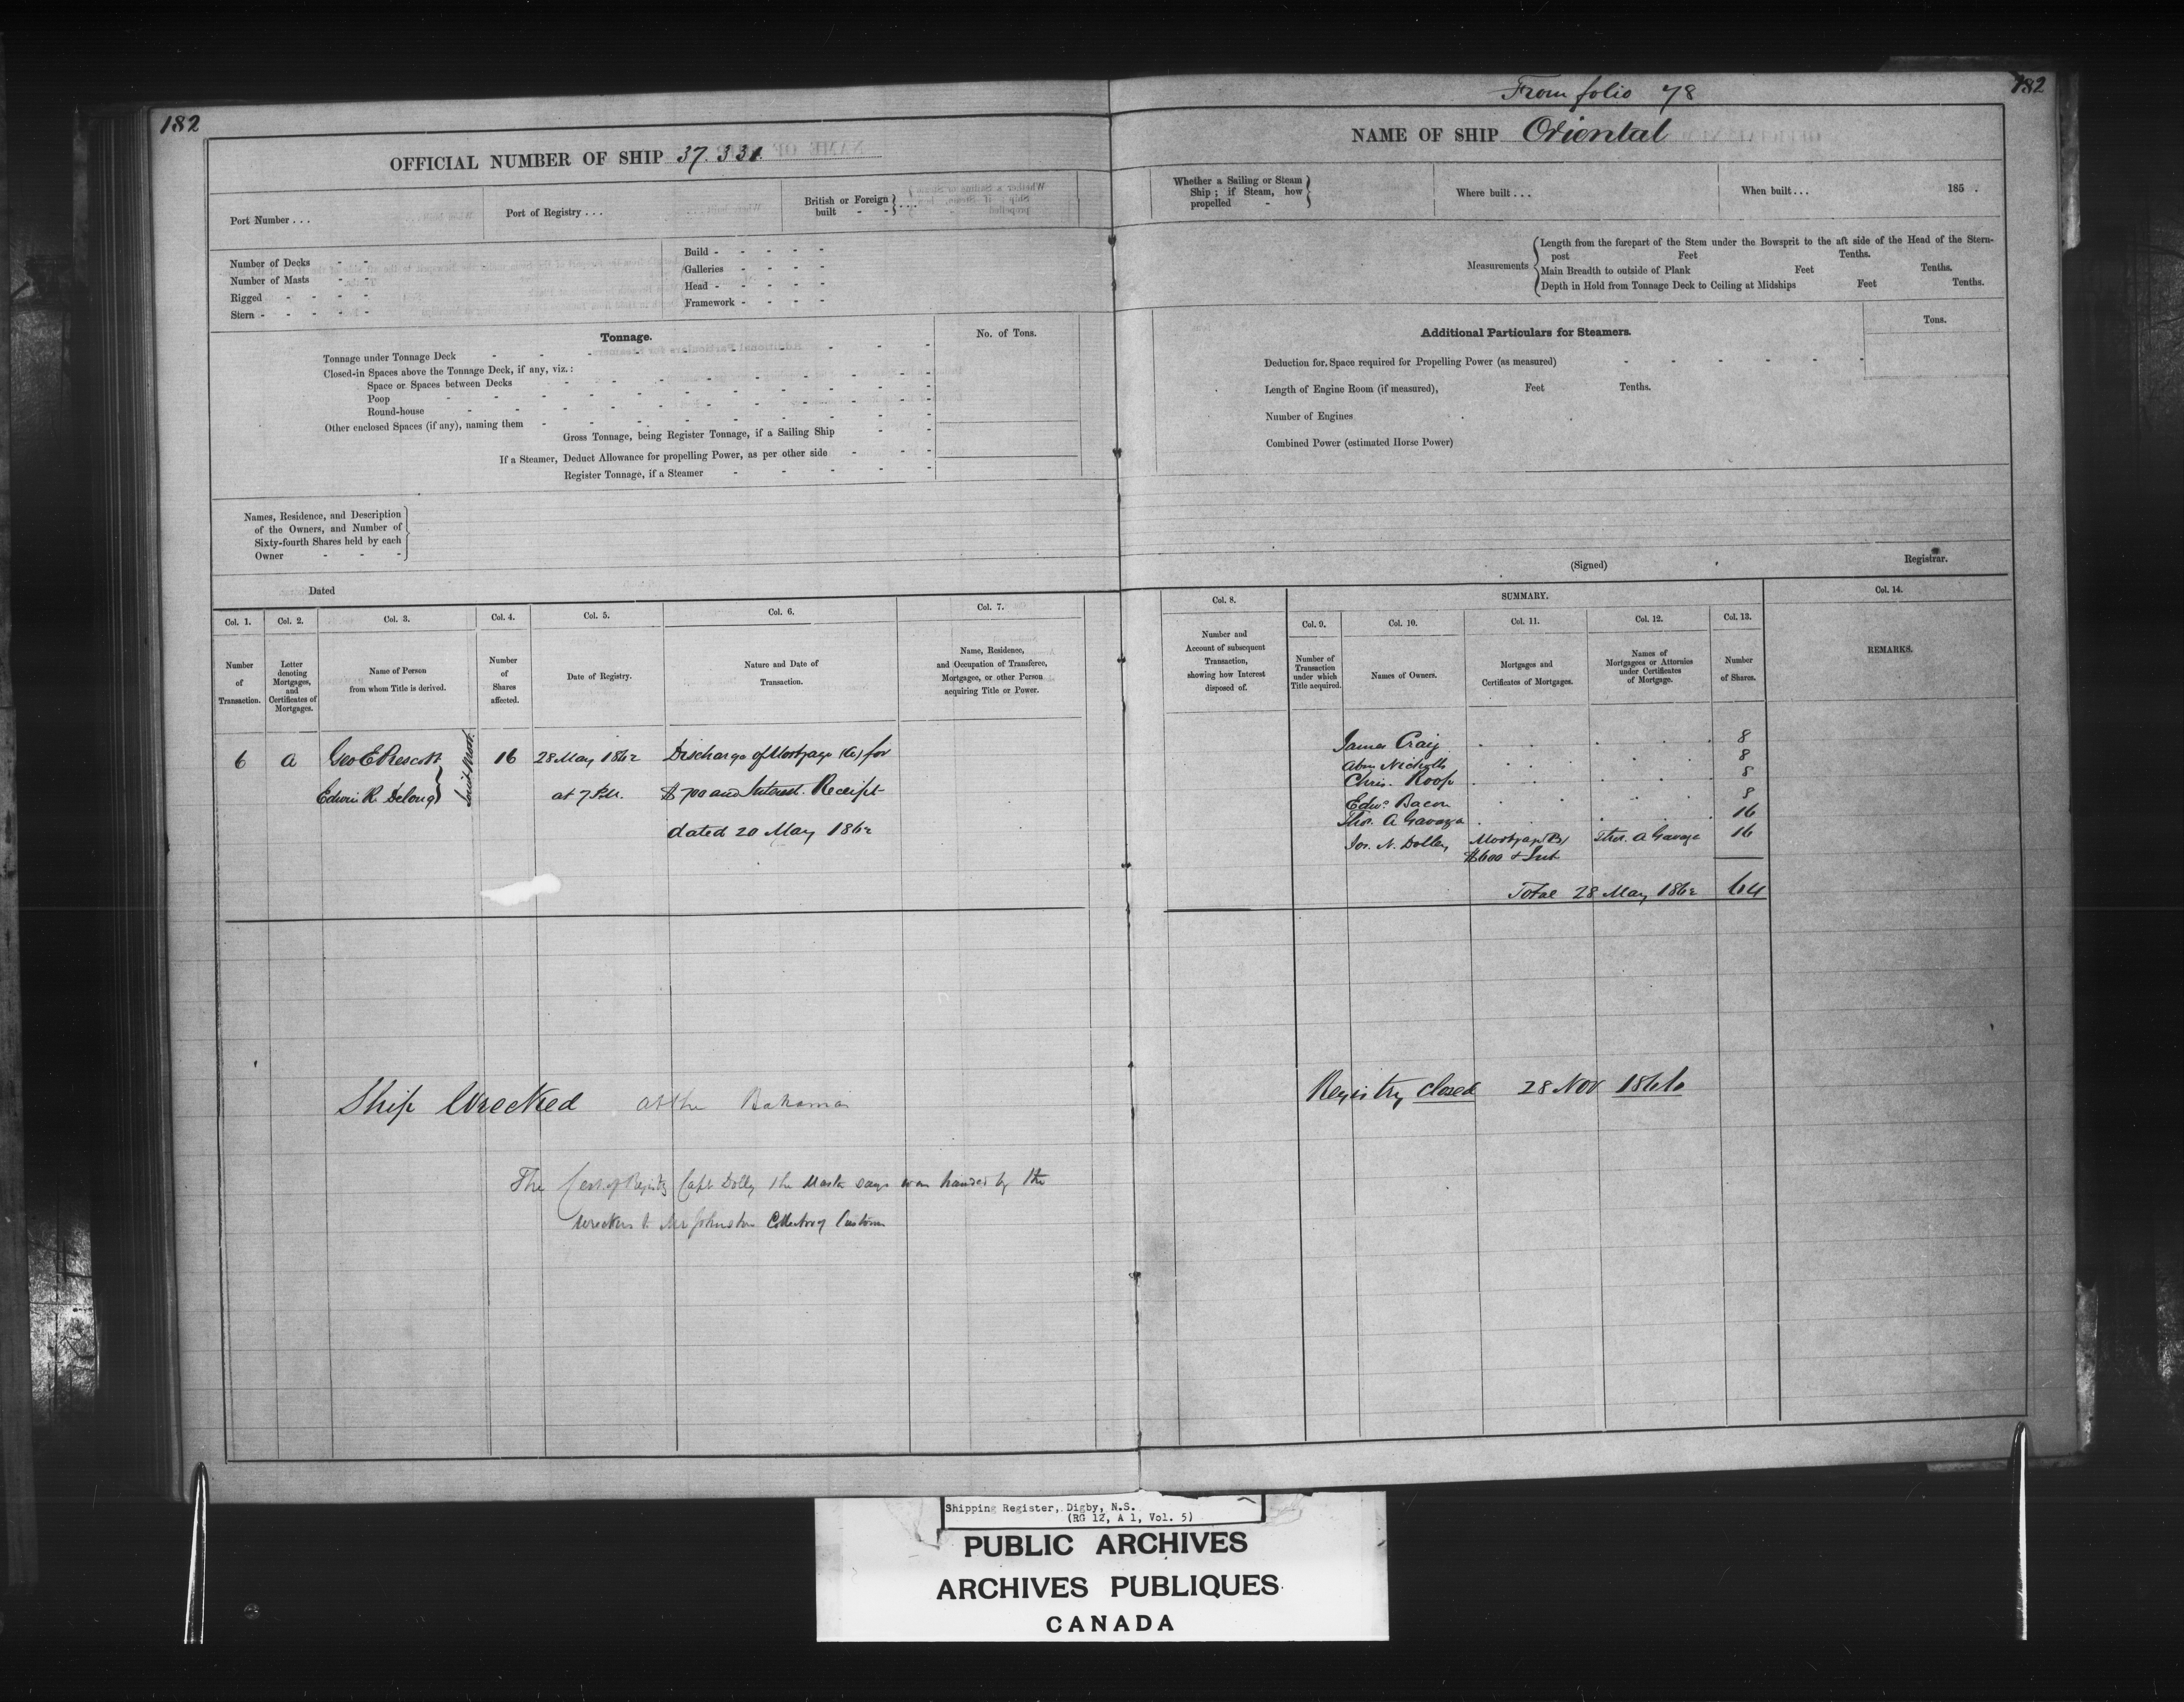 182
OFFICIAL NUMBER OF SHIP 37.331.
Port Number . . .
Port of Registry . . .
British or Foreign built - - } . . .
Number of Decks - -
Number of Masts - -
Rigged - - - -
Stern - - - - -
Build - - - - -
Galleries - - - -
Head - - - - -
Framework - - - -
Tonnage.
No. of Tons.
Tonnage under Tonnage Deck
Closed-in Spaces above the Tonnage Deck, if any, viz. :
Space or Spaces between Decks
Poop
Round-house
Other enclosed Spaces (if any), naming them
Gross Tonnage, being Register Tonnage, if a Sailing Ship
If a Steamer, Deduct Allowance for propelling Power, as per other side
Register Tonnage, if a Steamer
Names, Residence, and Description
of the Owners, and Number of
Sixty-fourth Shares held by each
Owner - - -
Dated
Col. 1.
Number
of
Transaction.
Col. 2.
Letter
denoting
Mortgages,
and
Certificates of
Mortgages.
Col. 3.
Name of Person
from whom Title is derived.
Col. 4.
Number
of
Shares
affected.
Col. 5.
Date of Registry.
Col. 6.
Nature and Date of
Transaction.
Col. 7.
Name, Residence,
and Occupation of Transferee,
Mortgagee, or other Person
acquiring Title or Power.
6 A Geo E Prescott 16 28 May 1862 Discharge of Mortgage (A) for
Edwin R. Delong } at 7 P.M. $700 and Interest. Receipt
Joint Mort.
dated 20 May 1862
Ship Wrecked at the Bahamas
The Cert. of Registry Capt Dolly the Master says was handed by the
wreckers to Mr Johnston Collector of Customs
From folio 78
182
NAME OF SHIP Oriental
Whether a Sailing or Steam
Ship; if Steam, how
propelled -
Where built . . .
When built . . . 185 .
Measurements
Length from the forepart of the Stem under the Bowsprit to the aft side of the Head of the Stern-
post Feet Tenths.
Main Breadth to outside of Plank Feet Tenths.
Depth in Hold from Tonnage Deck to Ceiling at Midships Feet Tenths.
Additional Particulars for Steamers.
Tons.
Deduction for Space required for Propelling Power (as measured)
Length of Engine Room (if measured), Feet Tenths.
Number of Engines
Combined Power (estimated Horse Power)
(Signed) Registrar.
Col. 8.
Number and
Account of subsequent
Transaction,
showing how Interest
disposed of.
SUMMARY.
Col. 9.
Number of
Transaction
under which
Title acquired.
Col. 10.
Names of Owners.
Col. 11.
Mortgages and
Certificates of Mortgages.
Col. 12.
Names of
Mortgagees or Attornies
under Certificates
of Mortgage.
Col. 13.
Number
of Shares.
Col. 14.
REMARKS.
James Craig 8
Abm Nicholls 8
Chris. Roop 8
Edwd Bacon 8
Thos. A Gavaza 16
Jos. N. Dolley Mortgage (B) Thos. A Gavaza 16
$600 & Int
Total 28 May 1862 64
Registry Closed 28 Nov 1866
Shipping Register, Digby, N.S.
(RG 12, A 1, Vol. 5)
PUBLIC ARCHIVES
ARCHIVES PUBLIQUES
CANADA